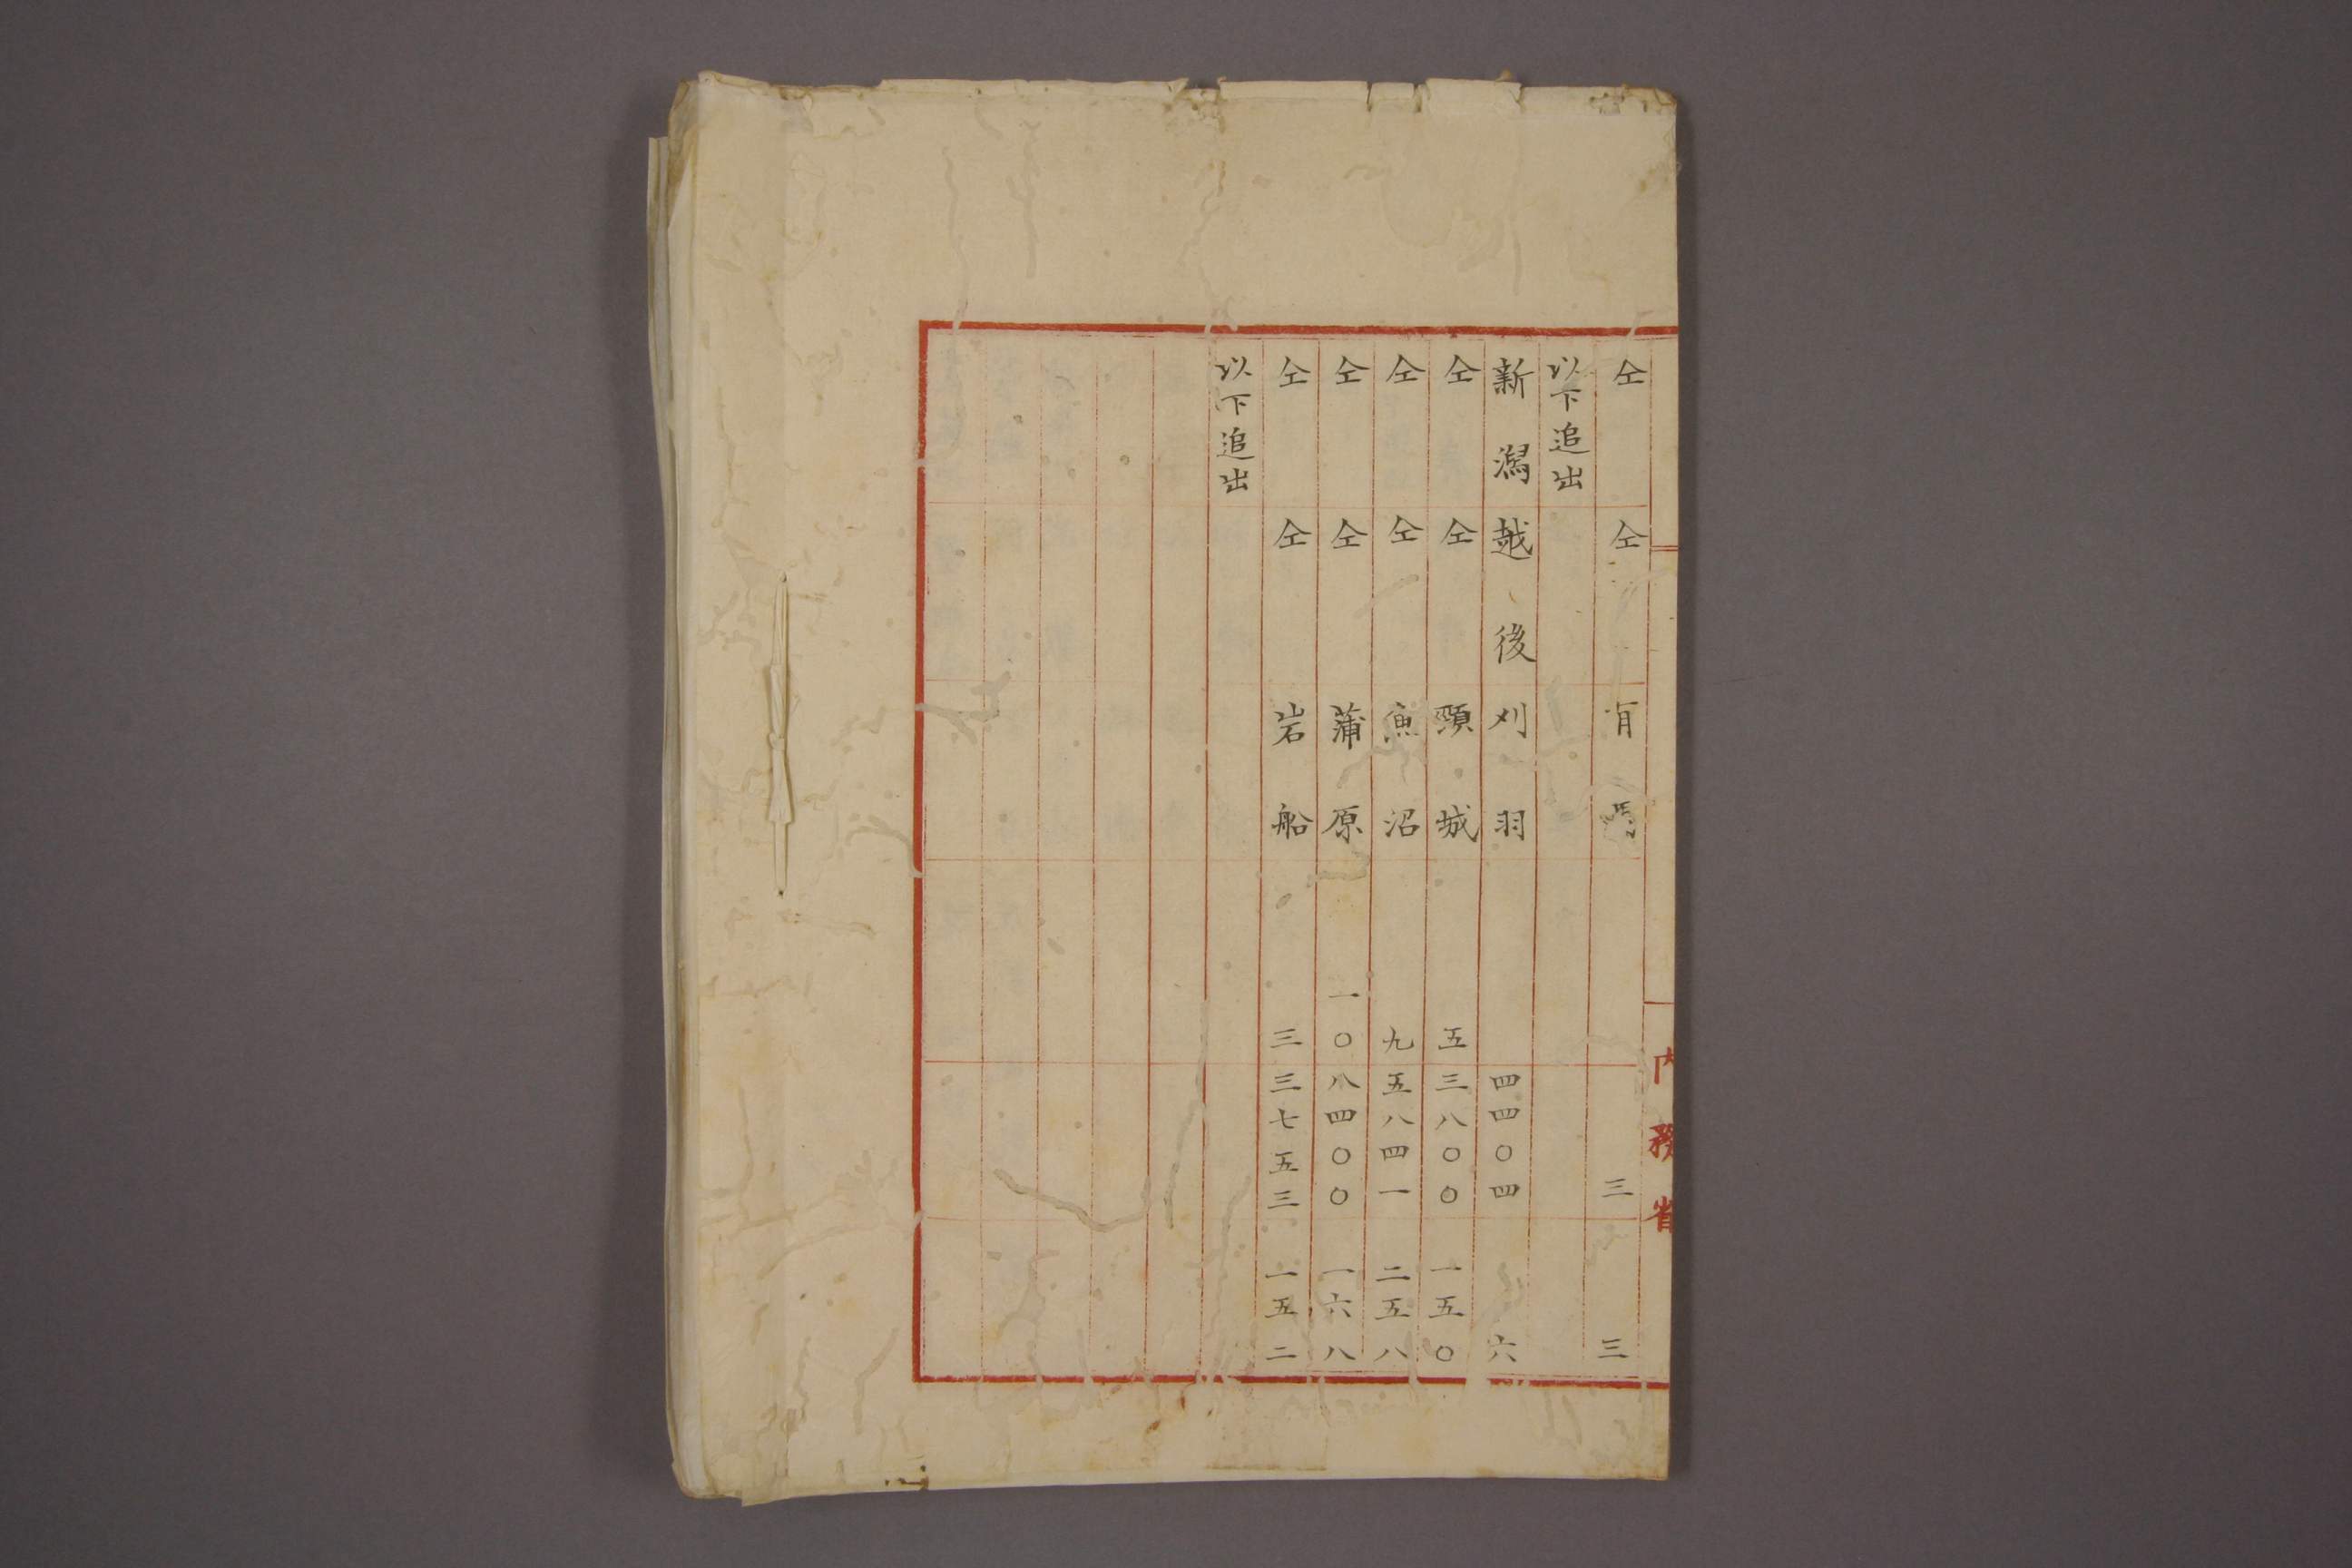 内務省
仝 仝 有 三 三
以下追出
新潟 越後 刈羽 四四〇四 六
仝 仝 頸城 五三八〇〇 一五〇
仝 仝 魚沼 九五八四一 二五八
仝 仝 蒲原 一〇八四〇〇 一六八
仝 仝 岩船 三三七五三 一五二
以下追出